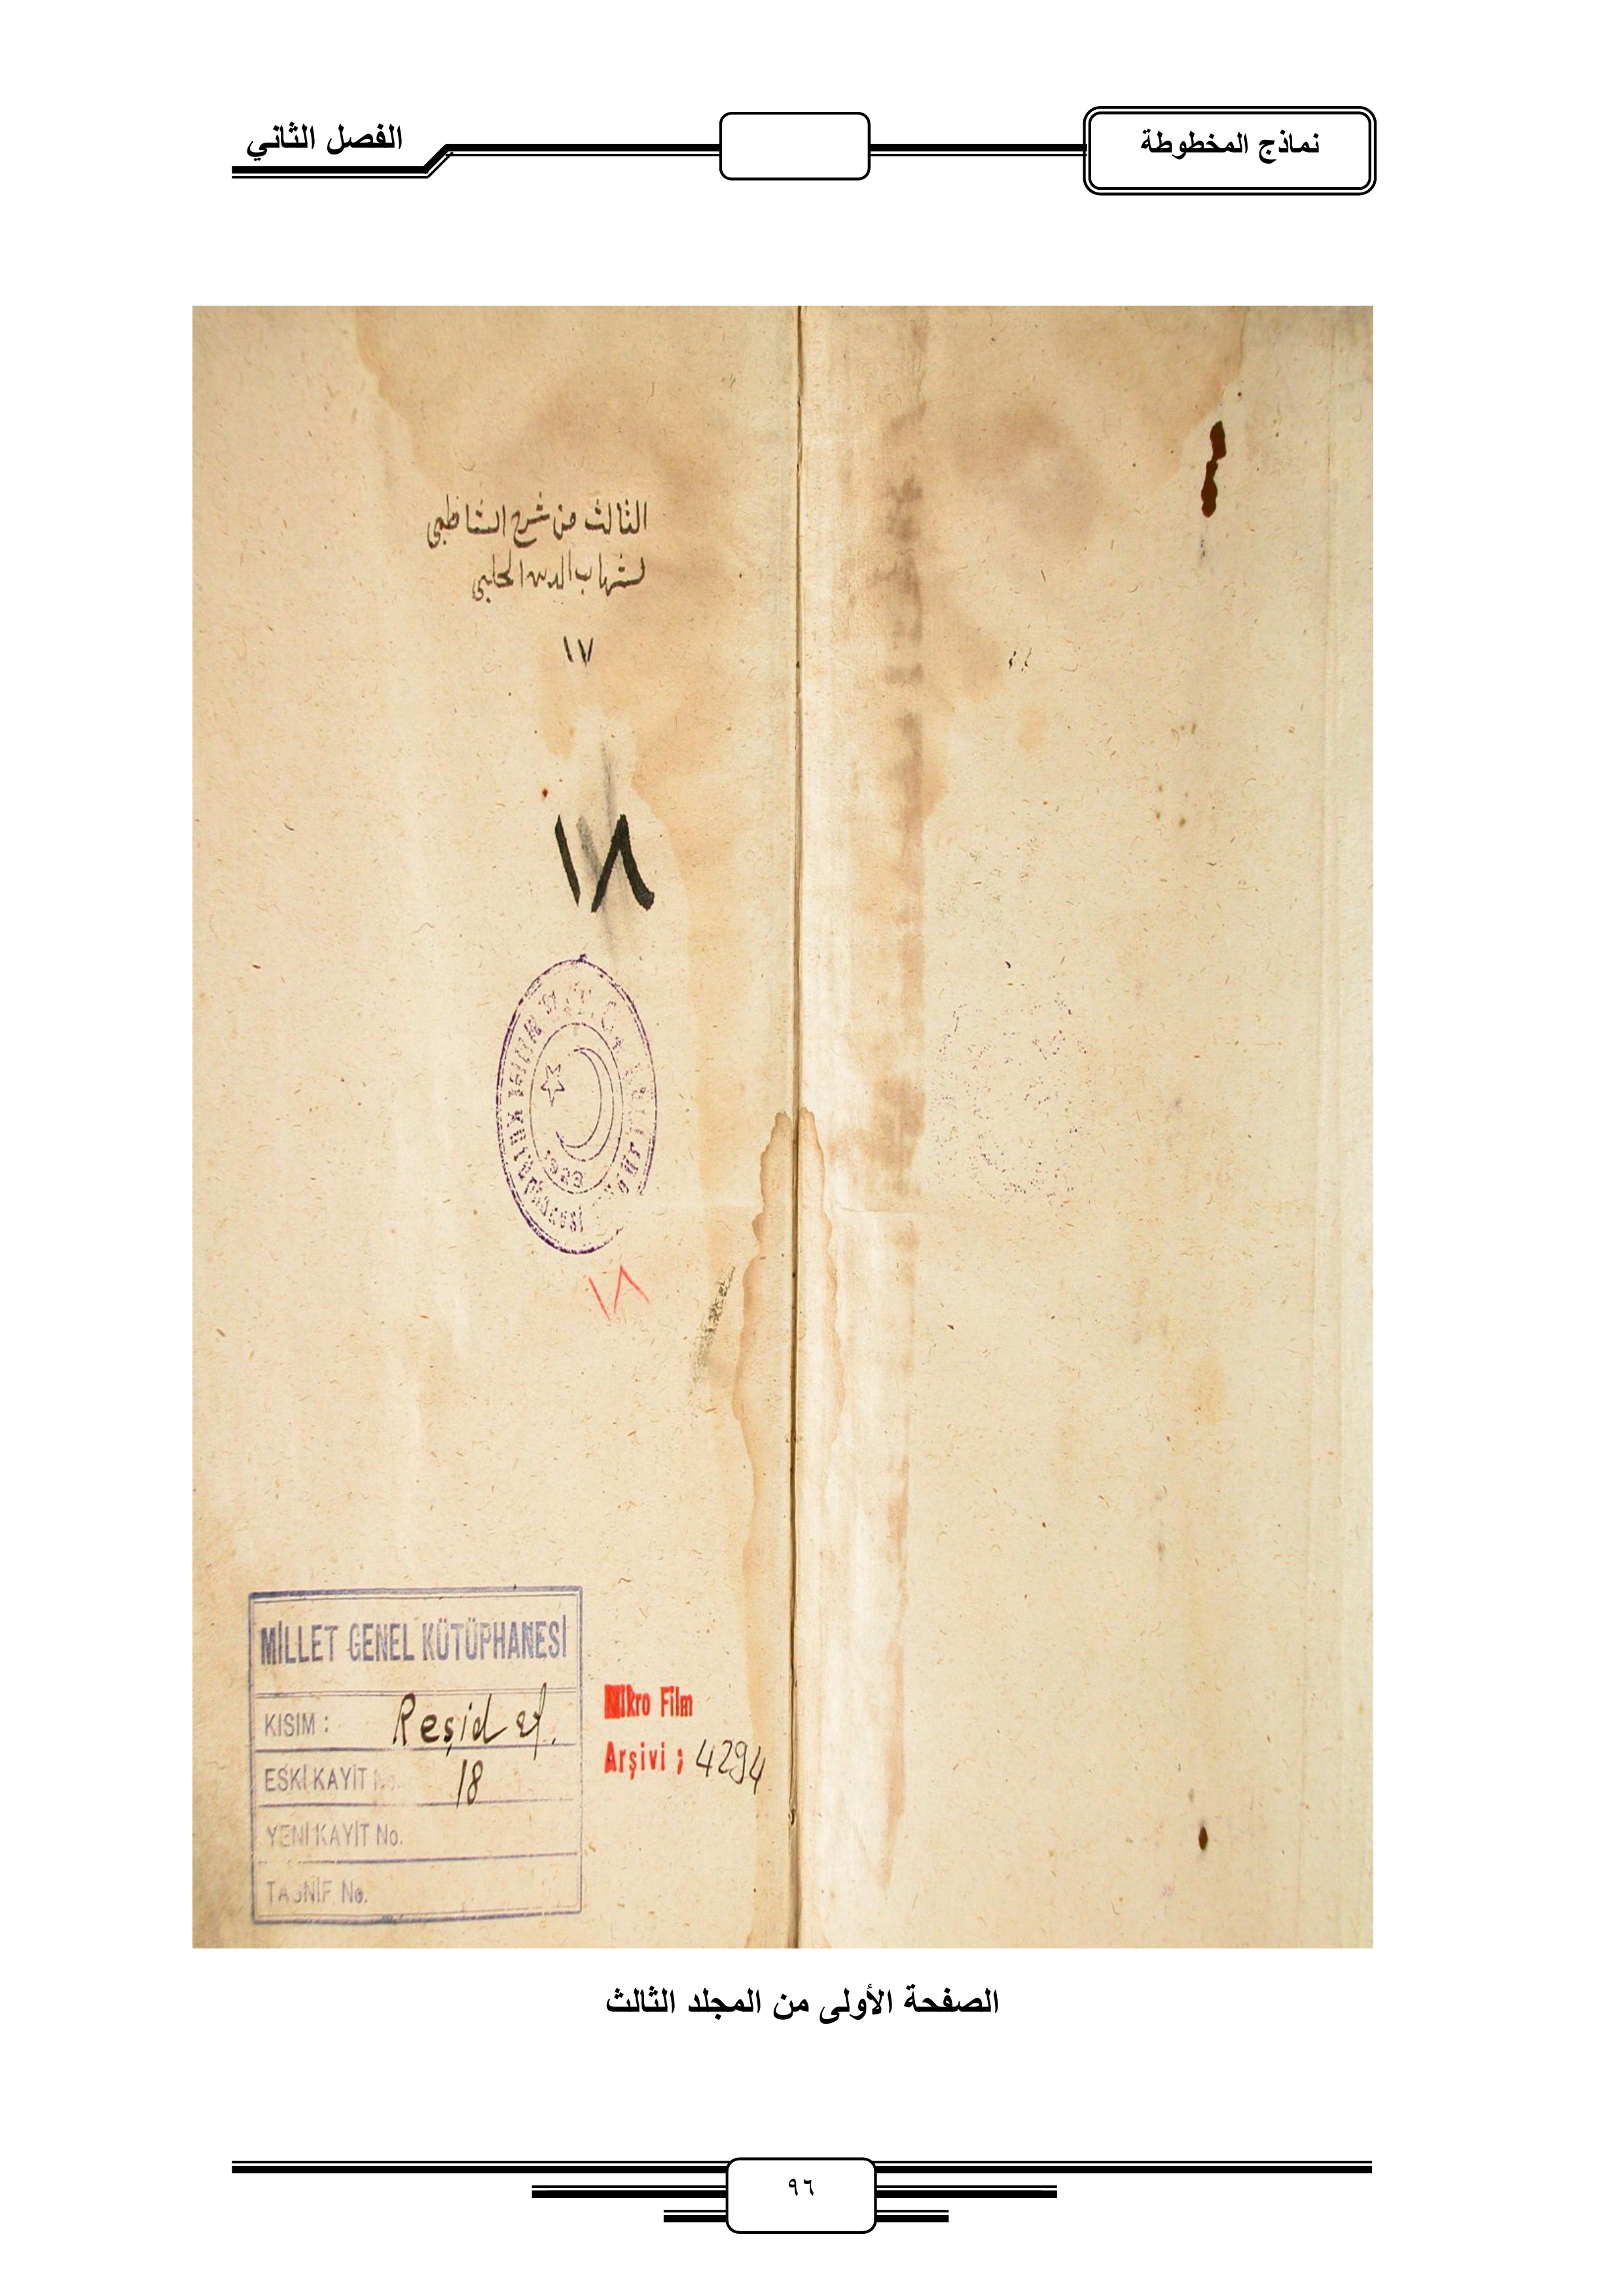 نماذج المخطوطة
الفصل الثاني
الثالث من شرح الشاطبي
لشهاب الدين الحلبي
١٧
١٨
1923
١٨
MİLLET GENEL KÜTÜPHANESİ
KISIM : Reşid ef.
ESKİ KAYIT No. 18
YENİ KAYIT No.
TASNİF No.
Mikro Film
Arşivi ; 4294
الصفحة الأولى من المجلد الثالث
٩٦